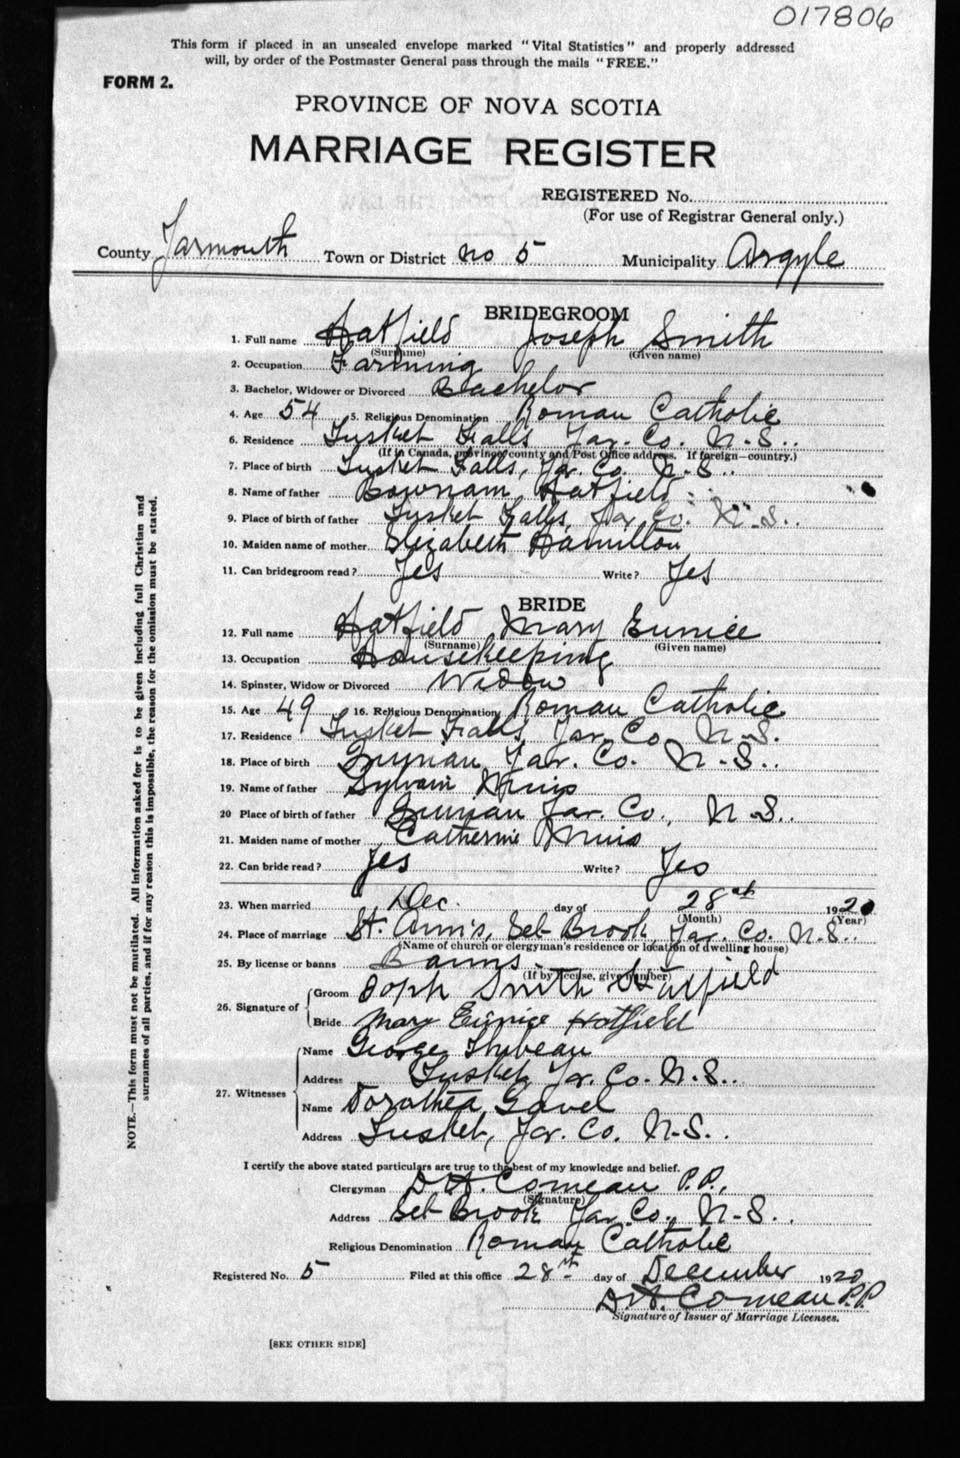 017806
This form if placed in an unsealed envelope marked "Vital Statistics" and properly addressed
will, by order of the Postmaster General pass through the mails "FREE."
FORM 2.
PROVINCE OF NOVA SCOTIA
MARRIAGE REGISTER
REGISTERED No.
(For use of Registrar General only.)
County Yarmouth Town or District No 5 Municipality Argyle
BRIDEGROOM
1. Full name Hatfield Joseph Smith
(Surname) (Given name)
2. Occupation Farming
3. Bachelor, Widower or Divorced Bachelor
4. Age 54 5. Religious Denomination Roman Catholic
6. Residence Tusket Falls Yar. Co. N.S..
(If in Canada, province, county and Post Office address. If foreign—country.)
7. Place of birth Tusket Falls, Yar. Co. N.S..
8. Name of father Bownam Hatfield
9. Place of birth of father Tusket Falls, Yar Co. N.S..
10. Maiden name of mother Elizabeth Hamilton
11. Can bridegroom read? Yes Write? Yes
BRIDE
12. Full name Hatfield Mary Eunice
(Surname) (Given name)
13. Occupation Housekeeping
14. Spinster, Widow or Divorced Widow
15. Age 49 16. Religious Denomination Roman Catholic
17. Residence Tusket Falls, Yar. Co. N.S.
18. Place of birth Yar. Co. N.S..
19. Name of father Sylvain
20 Place of birth of father Yar. Co., N.S..
21. Maiden name of mother Catherine
22. Can bride read? Yes Write? Yes
23. When married Dec. day of 28th 1920
(Month) (Year)
24. Place of marriage St. Ann's, Eel Brook Yar. Co. N.S..
(Name of church or clergyman's residence or location of dwelling house)
25. By license or banns Banns
(If by license, give number)
26. Signature of Groom Smith Hatfield
Bride Mary Eunice Hatfield
27. Witnesses Name George Thibeau
Address Tusket, Yar. Co. N.S..
Name Dorothea Gavel
Address Tusket, Yar. Co. N.S..
I certify the above stated particulars are true to the best of my knowledge and belief.
Clergyman D.H. Comeau P.P.,
(Signature)
Address Eel Brook Yar. Co., N.S..
Religious Denomination Roman Catholic
Registered No. 5 Filed at this office 28th day of December 1920
D.H. Comeau P.P.
Signature of Issuer of Marriage Licenses.
[SEE OTHER SIDE]
NOTE.—This form must not be mutilated. All information asked for is to be given including full Christian and
surnames of all parties, and if for any reason this is impossible, the reason for the omission must be stated.